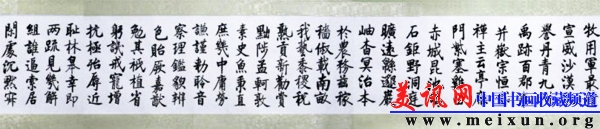 牧用軍最
宣威沙漠
譽丹青九
禹跡百郡
并嶽宗恒
禪主云亭
門紫塞雞
赤城昆池
石鉅野洞庭
曠遠緜邈巖
岫杳冥治本
於農務茲稼
穡俶載南畝
我藝黍稷稅
熟貢新勸賞
黜陟孟軻敦
素史魚秉直
庶幾中庸勞
謙謹勑聆音
察理鑑貌辨
色貽厥嘉猷
勉其祗植省
躬譏誡寵增
抗極殆辱近
恥林皋幸即
兩疏見幾解
組誰逼索居
閑處沉默寂
美讯网
中国书画收藏频道
www.meixun.org